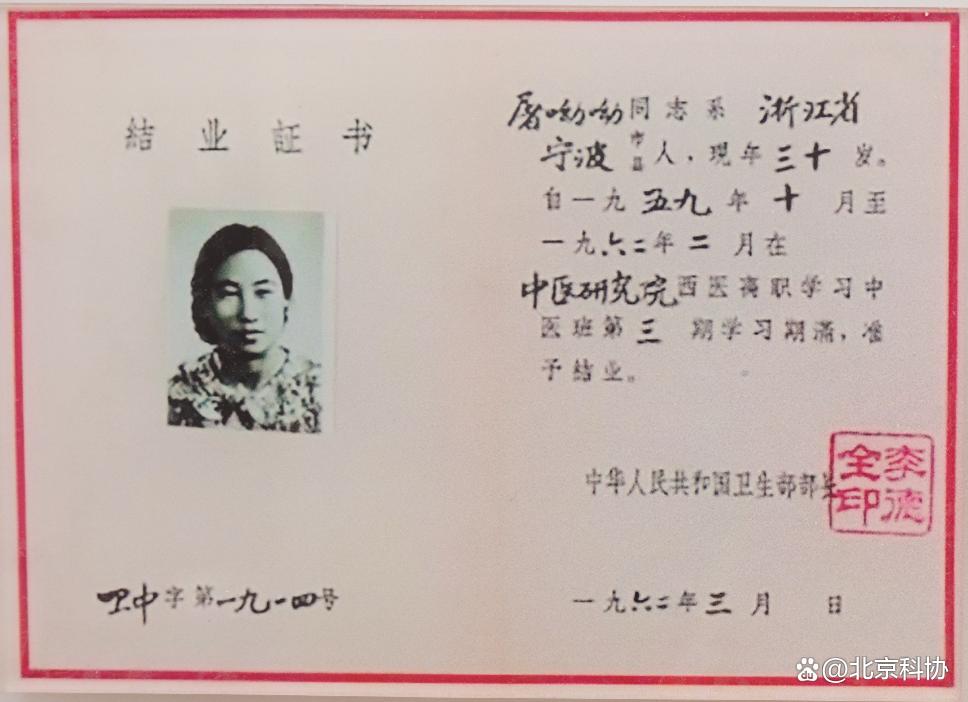 结业证书
卫中字第一九一四号
屠呦呦同志系 浙江省
宁波市县人，现年三十岁。
自一九五九年十月至
一九六二年二月在
中医研究院西医离职学习中
医班第三期学习期满，准
予结业。
中华人民共和国卫生部部长
李德全印
一九六二年三月 日
@北京科协